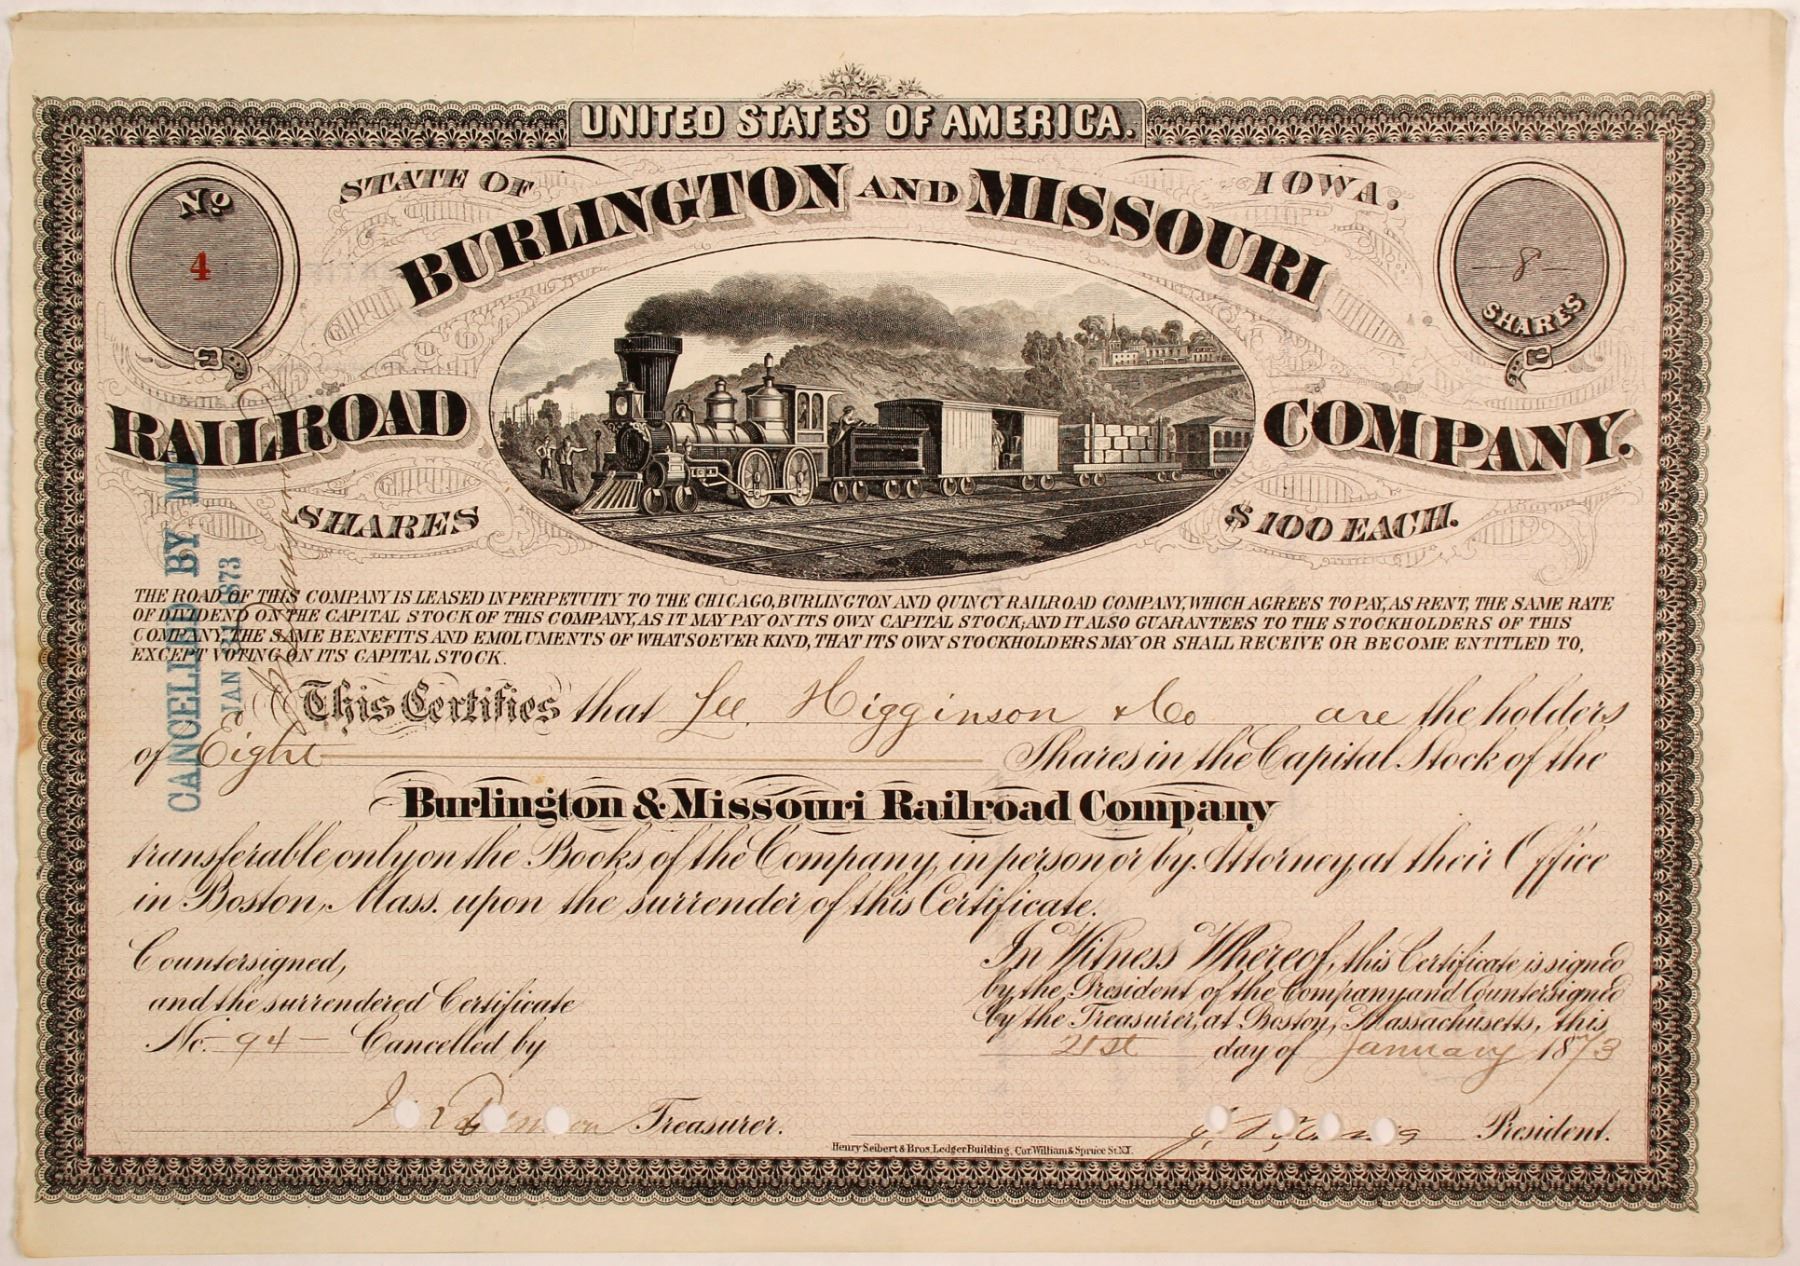 UNITED STATES OF AMERICA.
STATE OF IOWA.
No
4
8
SHARES
BURLINGTON AND MISSOURI
RAILROAD COMPANY.
SHARES $100 EACH.
THE ROAD OF THIS COMPANY IS LEASED IN PERPETUITY TO THE CHICAGO, BURLINGTON AND QUINCY RAILROAD COMPANY, WHICH AGREES TO PAY, AS RENT, THE SAME RATE
OF DIVIDEND ON THE CAPITAL STOCK OF THIS COMPANY, AS IT MAY PAY ON ITS OWN CAPITAL STOCK, AND IT ALSO GUARANTEES TO THE STOCKHOLDERS OF THIS
COMPANY, THE SAME BENEFITS AND EMOLUMENTS OF WHATSOEVER KIND, THAT ITS OWN STOCKHOLDERS MAY OR SHALL RECEIVE OR BECOME ENTITLED TO,
EXCEPT VOTING ON ITS CAPITAL STOCK.
This Certifies that Lee, Higginson & Co are the holders
of Eight Shares in the Capital Stock of the
Burlington & Missouri Railroad Company
transferable only on the Books of the Company, in person or by Attorney, at their Office
in Boston, Mass. upon the surrender of this Certificate.
Countersigned,
and the surrendered Certificate
No. 94 Cancelled by
Treasurer.
In Witness Whereof, this Certificate is signed
by the President of the Company and Countersigned
by the Treasurer, at Boston, Massachusetts, this
21st day of January 1873
President.
Henry Seibert & Bros. Ledger Building, Cor. William & Spruce St. N.Y.
CANCELLED BY ME
JAN 31 1873